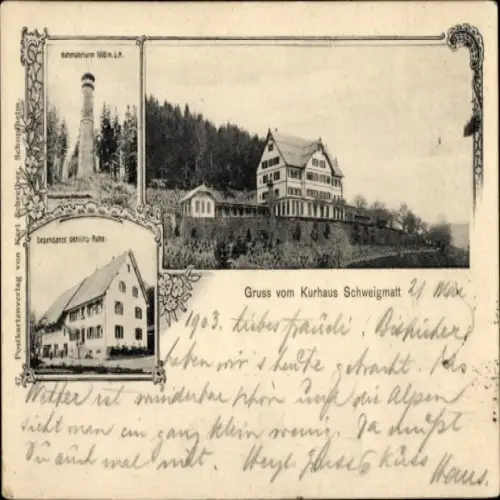 Hohmöhrturm 1000 m. ü. M.
Dependance Gehilins-Ruhe.
47. Postkartenverlag von Karl Schreiber, Schopfheim.
Gruss vom Kurhaus Schweigmatt 21 Mai
1903. Liebes Fräuli.
haben wir's heute gebracht. Das
Wetter ist wunderbar schön und die Alpen
sieht man ein ganz klein wenig. Da mußt
Du auch mal mit. Herzl. Gruss & Kuss
Hans.